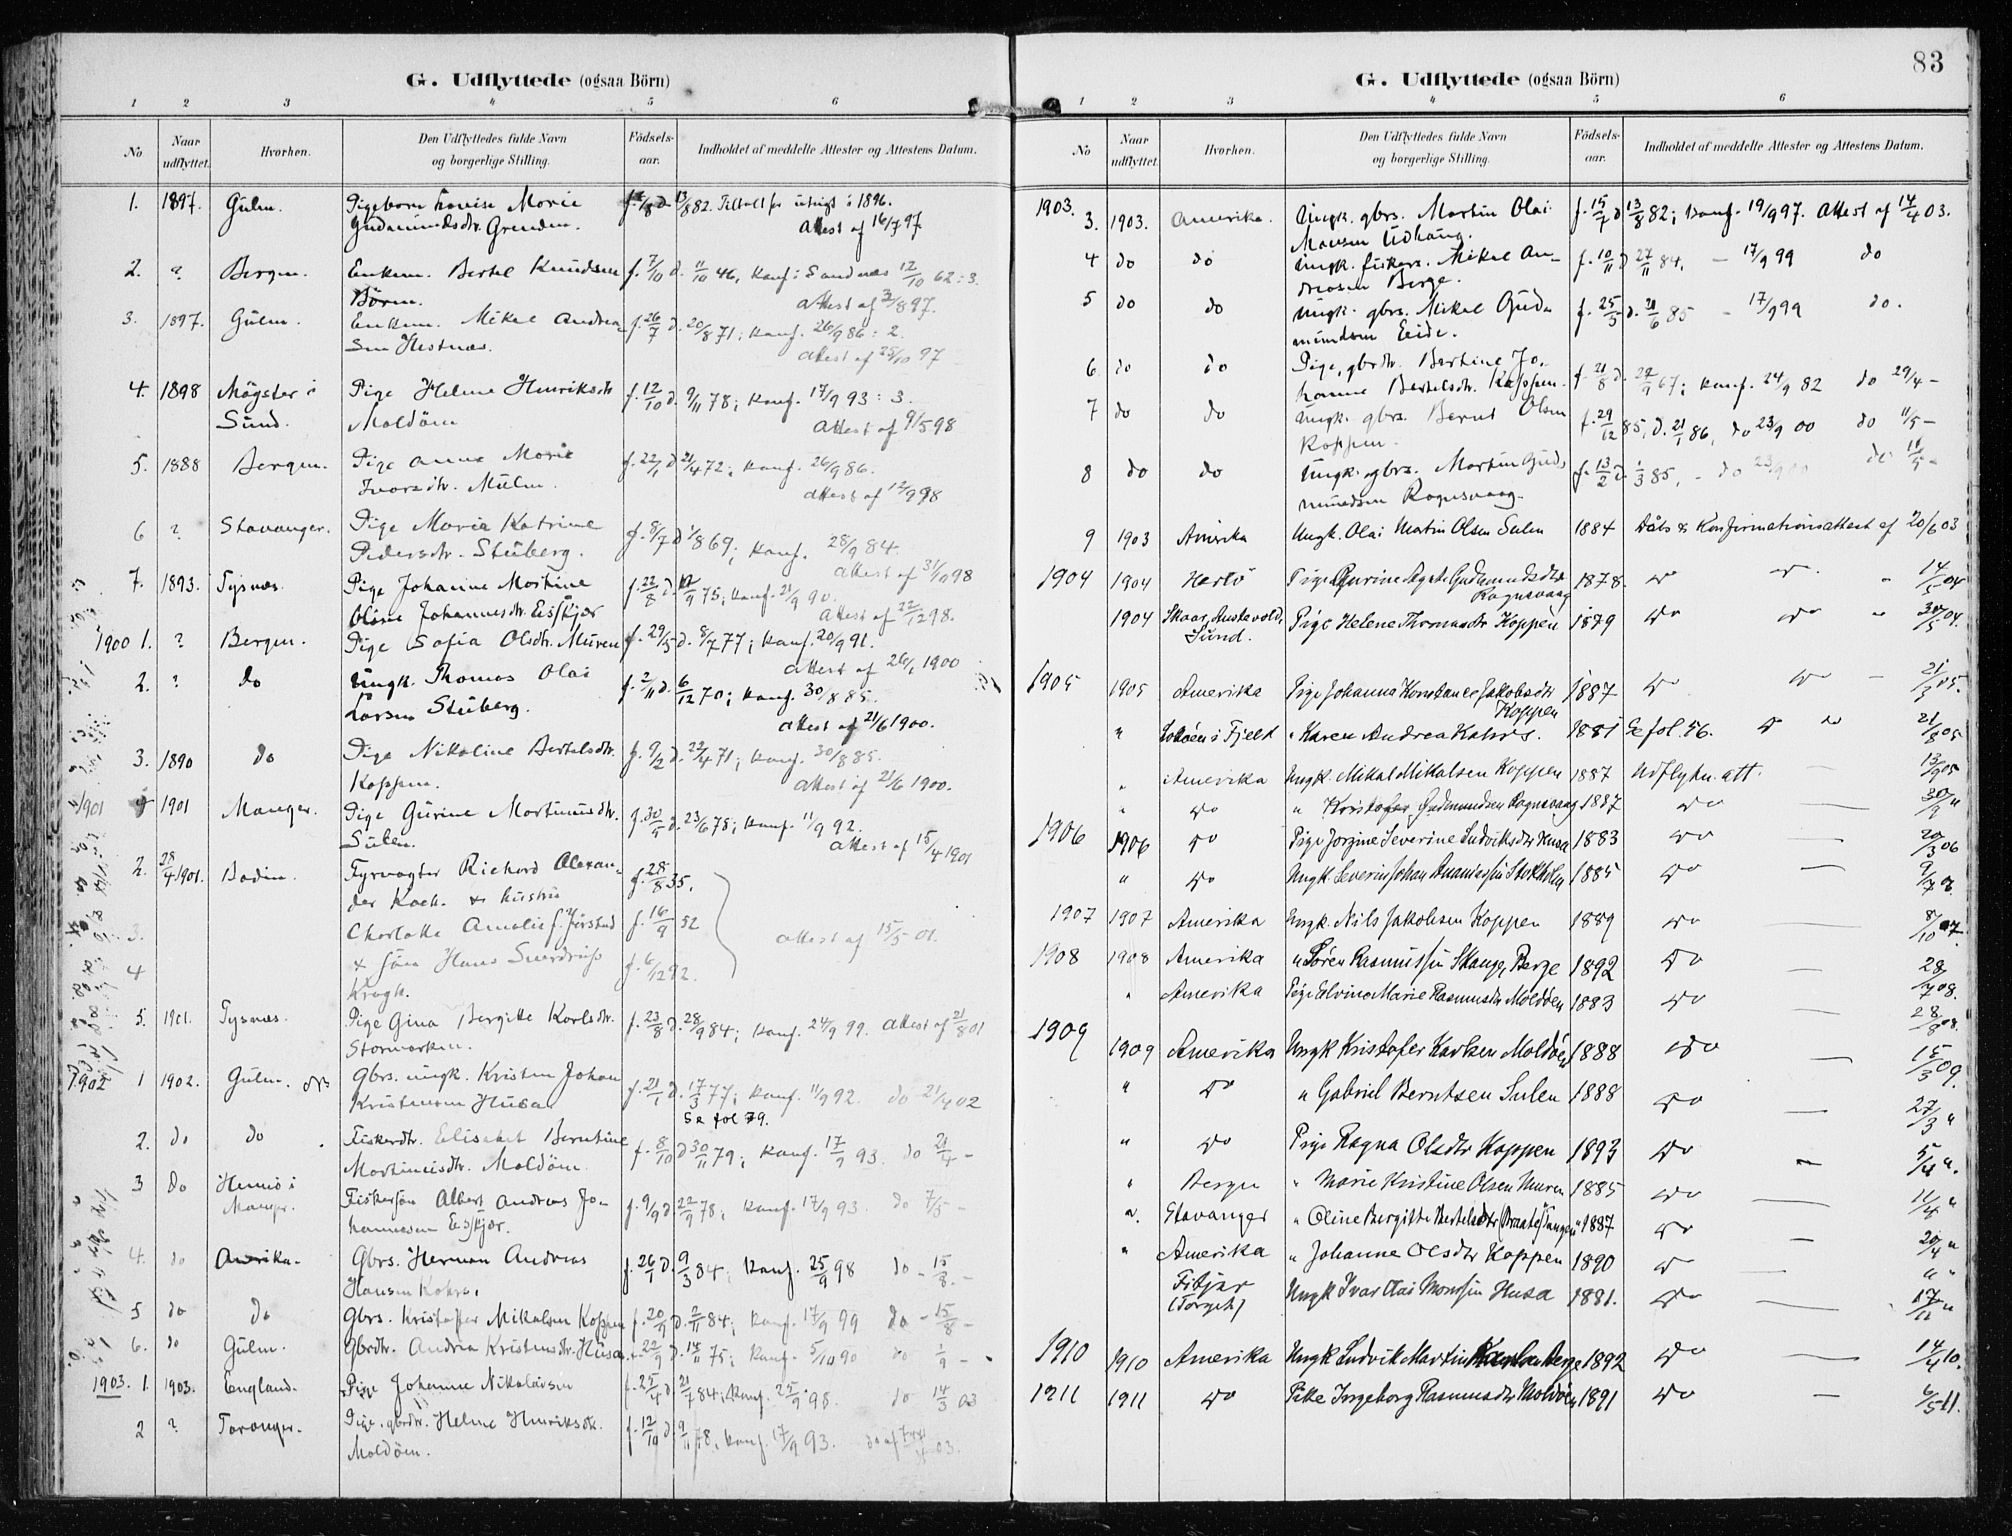 G. Udflyttede (ogsaa Börn)
1 2 3 4 5 6
No Naar udflyttet. Hvorhen. Den Udflyttedes fulde Navn og borgerlige Stilling. Födsels-aar. Indholdet af meddelte Attester og Attestens Datum.
1. 1897. Gulen. Pigebarn Lovise Marie
Gudmundsdtr. Grinden. Attest af 16/7 97.
2. ? Bergen. Enkem. Bertel Knudsen f. 7/10 d. 11/10 46, konf. i Sandnæs 12/10 62: 3.
Attest af
3. 1897. Gulen. Enkem. Mikal Andrea- f. 26/7 d. 20/8 71; konf. 26/9 86: 2.
sen Hestnæs. Attest af 25/10 97
4. 1898 Møgster i Pige Helene Henriksdtr f. 12/10 d. 9/11 78; konf. 17/9 93: 3.
Sund. Moldöen Attest af 9/5 98
5. 1888 Bergen. Pige Anna Marie f. 22/1 d. 21/4 72; konf. 26/9 86.
Ivarsdtr. Attest af 12/9 98
6 ? Stavanger. Pige Marie Katrine f. 8/7 d. 1/8 69; konf. 28/9 84.
Pedersdtr. Stuberg. Attest af 31/10 98
7. 1893. Tysnæs. Pige Johanne Martine f. 22/8 d. 75; konf. 21/9 90.
Johannesdtr. Eisskjær Attest af 22/12 98.
1900 1. ? Bergen. Pige Sofia Olsdtr. Muren f. 29/5 d. 8/7 77; konf. 20/9 91.
Attest af 26/1 1900
2. ? do Ungk. Thomas Olai f. 2/11 d. 6/12 70; konf. 30/8 85.
Larsen Stuberg. Attest af 21/6 1900.
3. 1890 do Pige Nikoline Bertelsdtr. f. 9/2 d. 22/4 71; konf. 30/8 85.
Koppen. Attest af 21/6 1900.
1901 1901 Manger. Pige Gurine Martinusdtr. f. 30/5 d. 23/6 78; konf. 11/9 92.
Sulen. Attest af 15/4 1901
2. 28/4 1901. Bodin. Fyrvogter Richard Alexan- f. 28/8 35.
der Koch. & hustru
3. Charlotte Amalie f. f. 16/9 52 Attest af 15/5 01.
4 & sön Hans f. 6/12 92.
Krogh.
5. 1901. Tysnæs. Pige Gina Bergitte Karlsdtr. f. 23/8 d. 28/9 84; konf. 24/9 99. Attest af 21/8 01
Stormarken.
1902 1 1902. Gulen. Gbrs. ungk. Kristen Johan f. 21/1 d. 17/3 77; konf. 11/9 92. do 21/4 02
Kristensen Husa Se fol 79.
2. do do Fiskerdtr. Elisabet Berntine f. 8/10 d 30/11 79; konf. 17/9 93. do 21/4 -
Martinusdtr. Moldöen.
3 do i Fiskersön Albert Andreas Jo- f. 9/9 d 22/9 78; konf. 17/9 93. do 7/5 -
Manger. hannesen Eisskjær.
4. do Amerika. Gbrs. Herman Andreas f. 26/1 d. 9/3 84; konf. 25/9 98 do - 15/8 -
Hansen Kahrs.
5 do do Gbrs. Kristoffer Mikalsen Koppen f. 20/9 d. 2/11 84; konf. 17/9 99 do - 15/8 -
6. do Gulen. Gbrdtr. Andrea Kristensdtr. Husa f. 22/9 d. 14/11 75; konf. 5/10 90 do 1/9 -
1903. 1. 1903. England. Pige Johanne Nikolaisen f. 25/4 d 21/7 84; konf. 25/9 98. do 14/3 03
2 ? Pige, gbrdtr. Helene Henriksdtr. f. 12/10 d. 9/11 78, konf. 17/9 93. do af
Moldöen.
83
G. Udflyttede (ogsaa Börn)
1 2 3 4 5 6
No Naar udflyttet. Hvorhen. Den Udflyttedes fulde Navn og borgerlige Stilling. Födsels-aar. Indholdet af meddelte Attester og Attestens Datum.
1903. 3. 1903. Amerika. Ungk. gbrs. Martin Olai f. 15/7 d 13/8 82; konf. 19/9 97. Attest af 14/4 03.
Monsen
4 do do Ungk. fiskers. Mikal An- f. 10/11 d 27/11 84. - 17/9 99 do
dreasen Berge.
5 do do Ungk. gbrs. Mikal Gud- f. 25/5 d. 21/6 85 - 17/9 99 do.
mundsen Eide.
6 do do Pige, gbrdtr. Bertine Jo- f. 21/8 d. 22/9 67; konf. 24/9 82 do 29/4 -
hanna Bertelsdtr. Koppen.
7 do do Ungk. gbrs. Bernt Olsen f. 29/12 85, d. 21/1 86, do 23/9 00 do 11/5 -
Koppen.
8 do do Ungk. gbrs. Martin Gud- f. 13/2 d. 1/3 85, - do 23/9 00 do 11/5 -
mundsen Rognsvaag.
9 1903 Amerika Ungk. Olai Martin Olsen Sulen 1884 Dåbs & Konfirmationsattest af 20/6 03
1904 1904 Herlö Pige Gurine Agate Gudmundsdtr 1878. do do " 14/5 04
Rognsvaag
1904 Skaar, Austevold, Pige Helene Thomasdtr Koppen 1879 do do " 30/5 04.
Sund.
1905 1905 Amerika Pige Johanna Konstance Jakobsdtr 1887 do do - 05.
Koppen
" i Fjeld " Karen Andrea Kahrs. 1881 Se fol. 56. do do 21/8 05
" Amerika Ungk. Mikal Mikalsen Koppen 1887 Udflytn. att. — 13/9 05
" do " Kristofer Gudmundsen Rognsvaag 1887 do — 30/9 "
1906 1906 do Pige Jorgine Severine Ludviksdtr Husa 1883 do — 20/3 06
" do Ungk. Severin Johan 1885 do — 9/7 "
1907 1907 Amerika Ungk. Nils Jakobsen Koppen 1889 do — 8/10 07.
1908 1908 Amerika " Sören Rasmussen Skauge, Berge 1892 do — 28/7 08.
" Amerika Pige Elvina Marie Rasmusdtr Moldöen 1883 do — 28/8 08.
1909 1909 Amerika Ungk Kristofer Karlsen Moldöen 1888 do — 15/3 09.
" do " Gabriel Berntsen Sulen 1888 do — 27/3 "
" do Pige Ragna Olsdtr Koppen 1893 do —
" Bergen " Marie Kristine Olsen Muren 1885 do — 11/4 "
" Stavanger " Oline Bergitte Bertelsdtr 1887 do — 20/4 "
" Amerika " Johanne Olsdtr Koppen 1890 do — " "
Fitjar Ungk Ivar Olai Monsen Husa 1881. do — 17/11 "
1910 1910 Amerika Ungk Ludvik Martin Berge 1892 do — 14/4 10.
1911 1911 do Pike Ingeborg Rasmusdtr Moldöen 1891 do — 6/5 11.